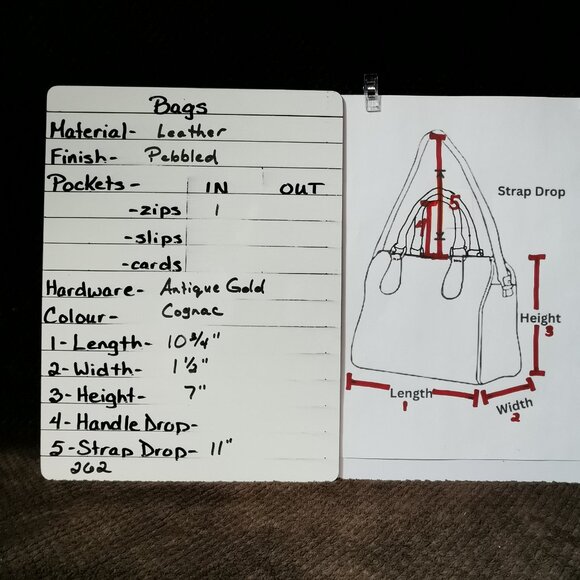 Bags
Material- Leather
Finish- Pebbled
Pockets- IN OUT
-zips 1
-slips
-cards
Hardware- Antique Gold
Colour- Cognac
1-Length- 10 3/4"
2-Width- 1 1/2"
3-Height- 7"
4-Handle Drop-
5-Strap Drop- 11"
262
Strap Drop
5
4
Height 3
Length
1
Width
2